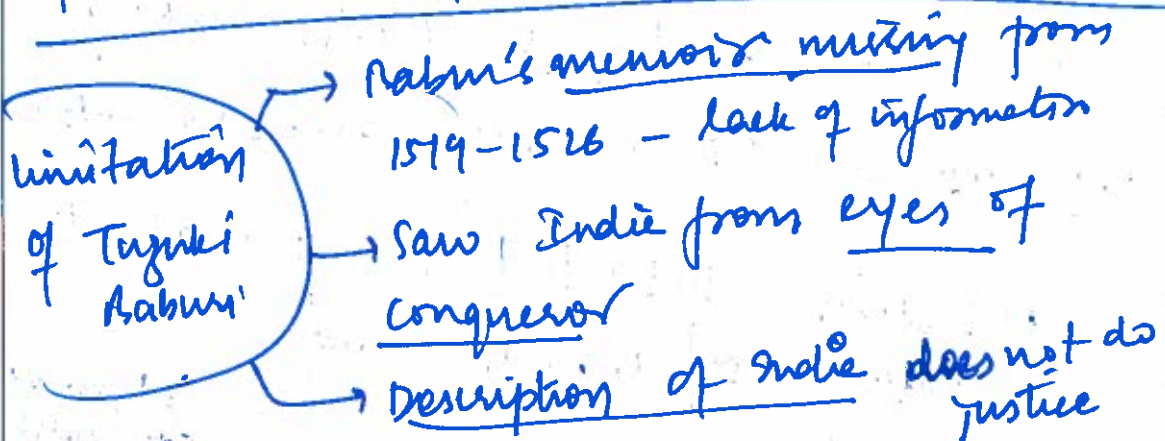 limitation
of Tuzuki
Baburi
→ Babur's memoir missing from
1519-1526 - lack of information
→ Saw India from eyes of
conqueror
→ Description of India does not do
justice